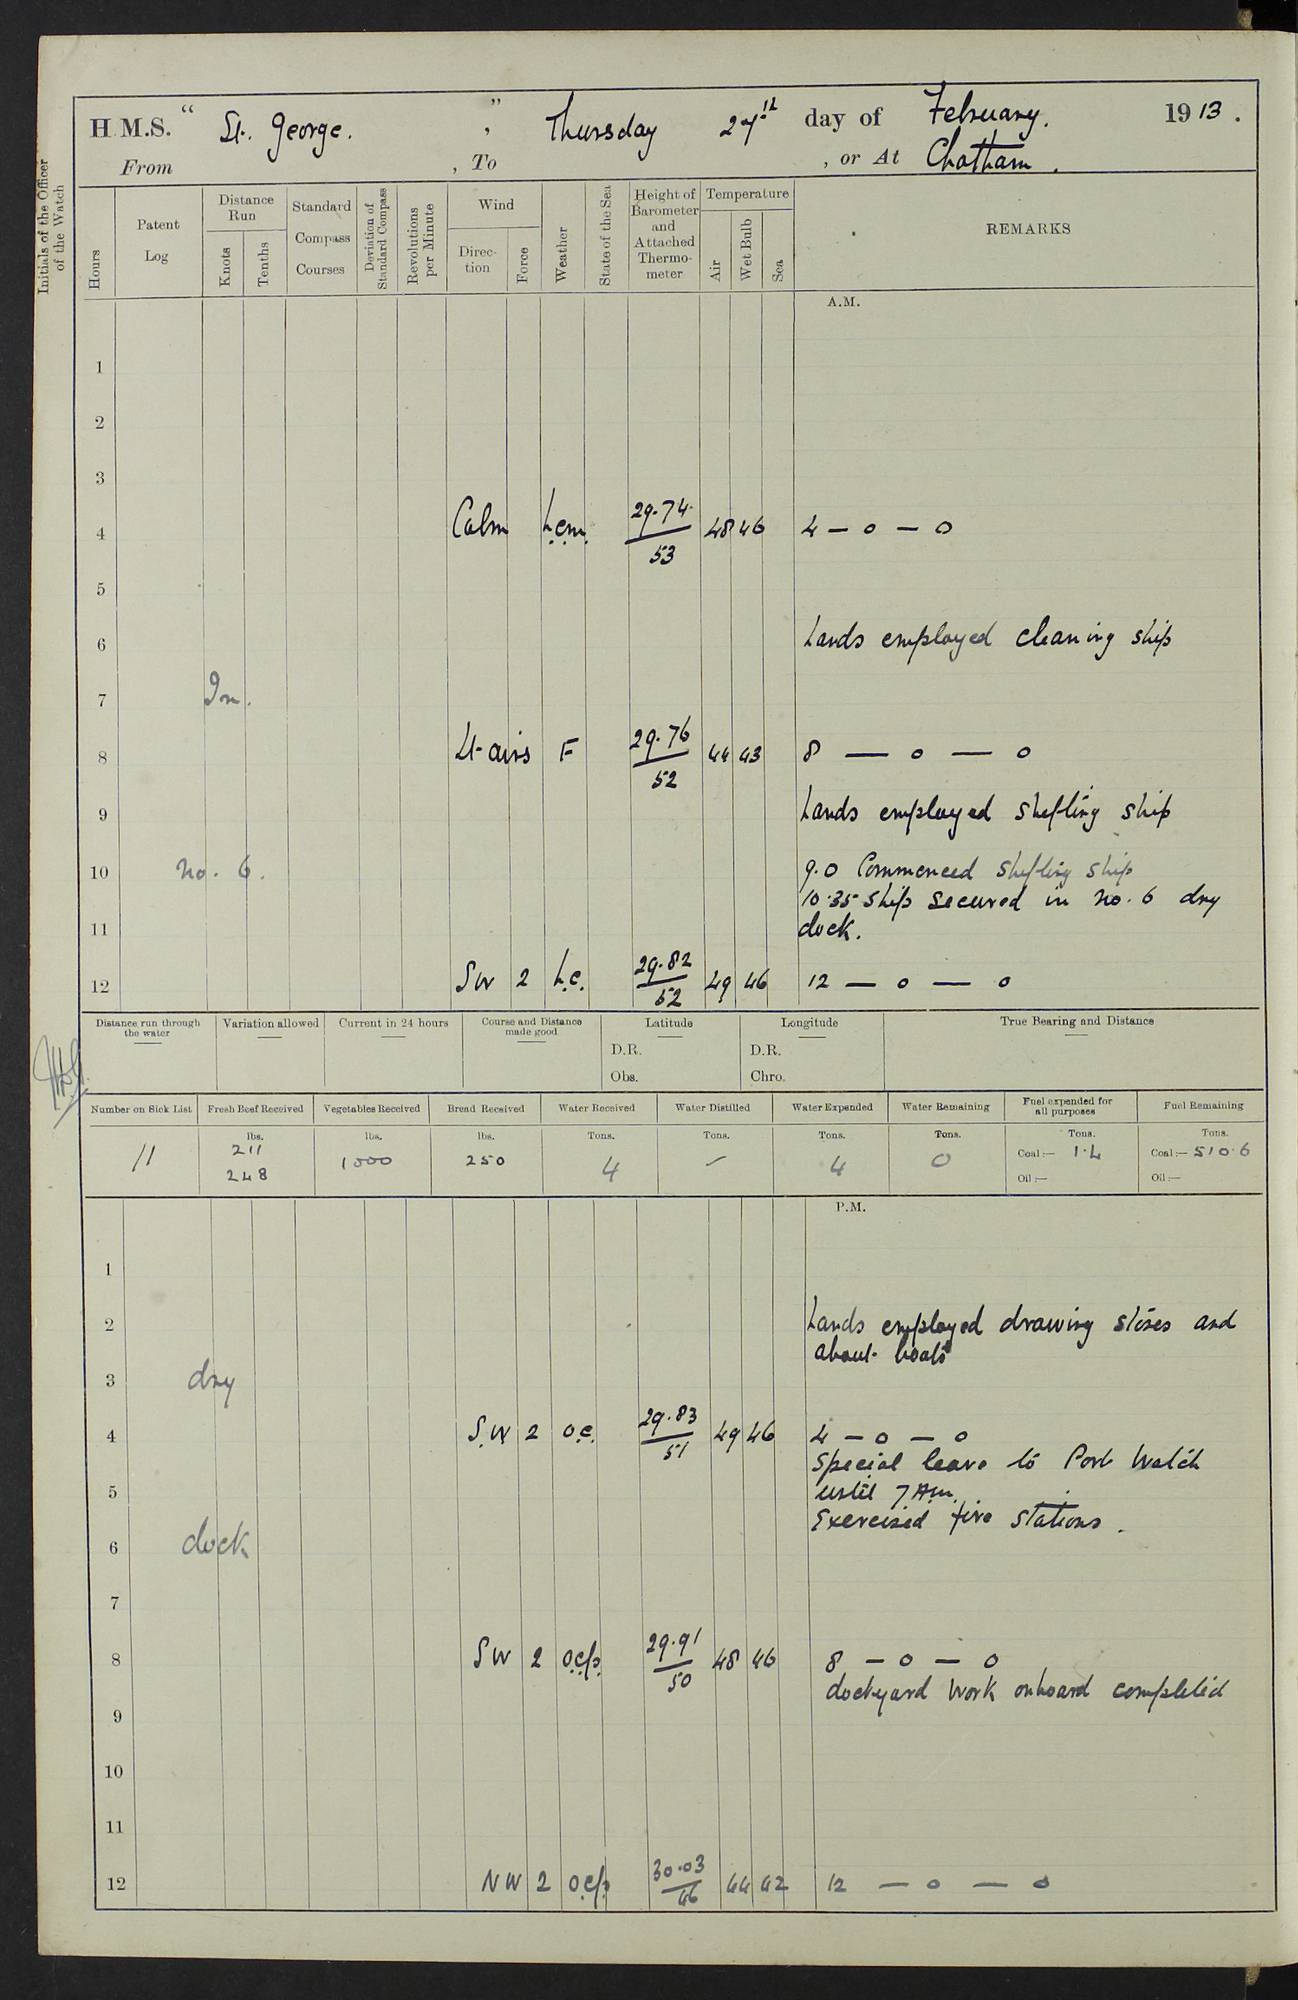 H.M.S. " St. George. " , Thursday 27th day of February. 1913.
From , To , or At Chatham.
Initials of the Officer of the Watch
Hours
Patent Log
Distance Run
Knots
Tenths
Standard Compass Courses
Deviation of Standard Compass
Revolutions per Minute
Wind
Direction
Force
Weather
State of the Sea
Height of Barometer and Attached Thermometer
Temperature
Air
Wet Bulb
Sea
REMARKS
A.M.
1
2
3
4 Calm b.c.m. 29.74 / 53 48 46 4 — 0 — 0
5
6 hands employed cleaning ship
7 In.
8 Lt airs F 29.76 / 52 44 43 8 — 0 — 0
9 hands employed shifting ship
10 No. 6. 9.0 Commenced shifting ship
10.35 Ship secured in No. 6 dry
11 dock.
12 SW 2 b.c. 29.82 / 52 49 46 12 — 0 — 0
Distance run through the water
Variation allowed
Current in 24 hours
Course and Distance made good
Latitude
D.R.
Obs.
Longitude
D.R.
Chro.
True Bearing and Distance
Number on Sick List
Fresh Beef Received
Vegetables Received
Bread Received
Water Received
Water Distilled
Water Expended
Water Remaining
Fuel expended for all purposes
Fuel Remaining
11
lbs. 211
248
lbs. 1000
lbs. 250
Tons. 4
Tons. –
Tons. 4
Tons. 0
Tons. Coal:— 1.4
Oil:—
Tons. Coal:— 510.6
Oil:—
P.M.
1
2 hands employed drawing stores and
about boats
3 dry
4 S.W 2 o.c. 29.83 / 51 49 46 4 — 0 — 0
Special leave to Port Watch
5 until 7 Am.
Exercised fire stations.
6 dock
7
8 SW 2 o.c.p. 29.91 / 50 48 46 8 — 0 — 0
dockyard work onboard completed
9
10
11
12 NW 2 o.c.p. 30.03 / 46 44 42 12 — 0 — 0